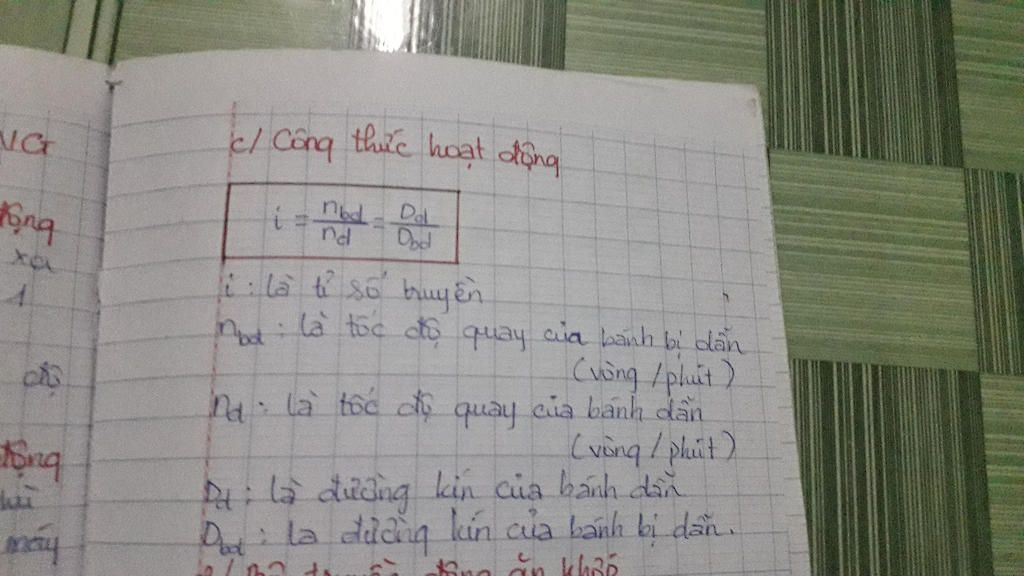 NG
động
xa
1
độ
động
máy
c/ Công thức hoạt động
i = n_bd / n_d = D_d / D_bd
i : là tỉ số truyền
n_bd : là tốc độ quay của bánh bị dẫn
(vòng / phút)
n_d : là tốc độ quay của bánh dẫn
(vòng / phút)
D_d : là đường kín của bánh dẫn
D_bd : la đường kín của bánh bị dẫn.